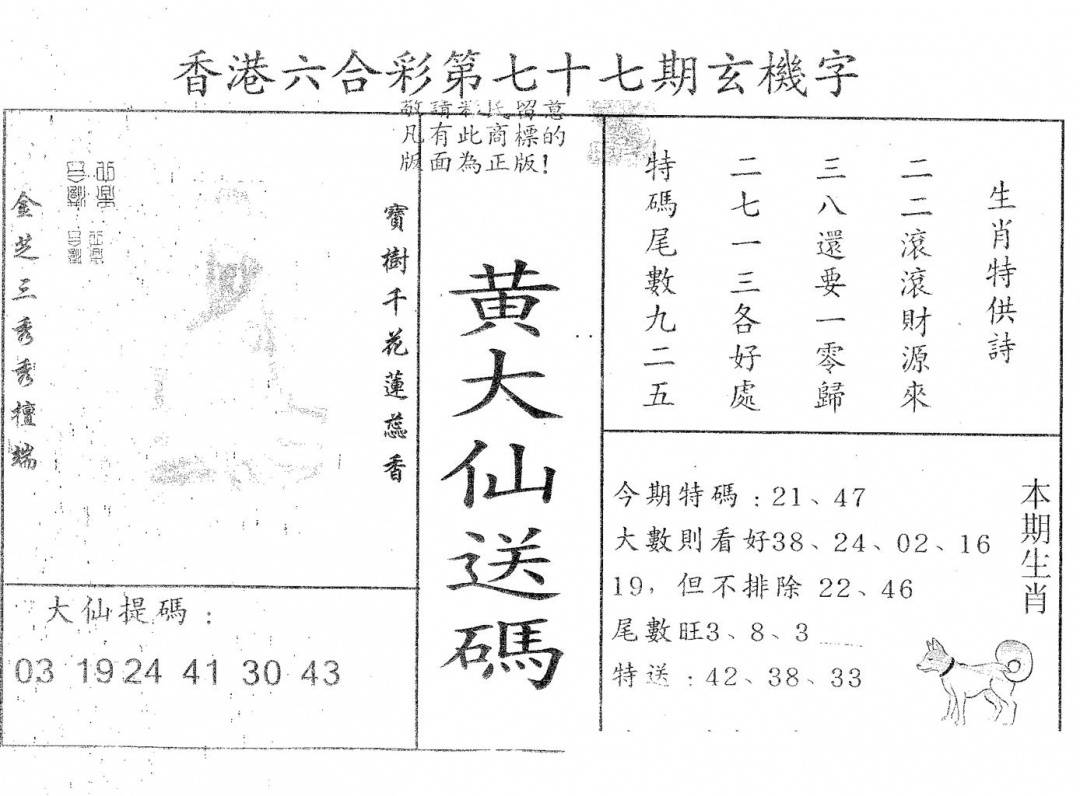 香港六合彩第七十七期玄機字
敬請彩民留意
凡有此商標的
版面為正版!
生肖特供詩
二二滾滾財源來
三八還要一零歸
二七一三各好處
特碼尾數九二五
黃大仙送碼
寶樹千花蓮蕊香
金芝三秀秀檀端
大仙提碼：
03 19 24 41 30 43
本期生肖
今期特碼：21、47
大數則看好38、24、02、16
19，但不排除 22、46
尾數旺3、8、3
特送：42、38、33